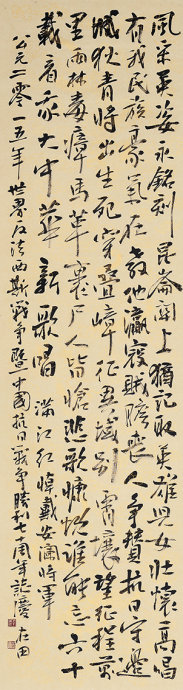 風采英姿永銘刻崑崙關上猶記取英雄兒女壯懷高
有我民族豪氣在教他瀛寇賊膽喪人爭贊抗日守邊
城狄青將出生死穿疊嶂征異域別霄壤望征程萬
里雨林毒瘴馬革裹尸人皆愴悲歌慷慨誰能忘六十
載看我大中華新歌唱 滿江紅悼戴安瀾將軍
公元二零一五年世界反法西斯戰爭暨中國抗日戰爭勝利七十周年誌慶 在田